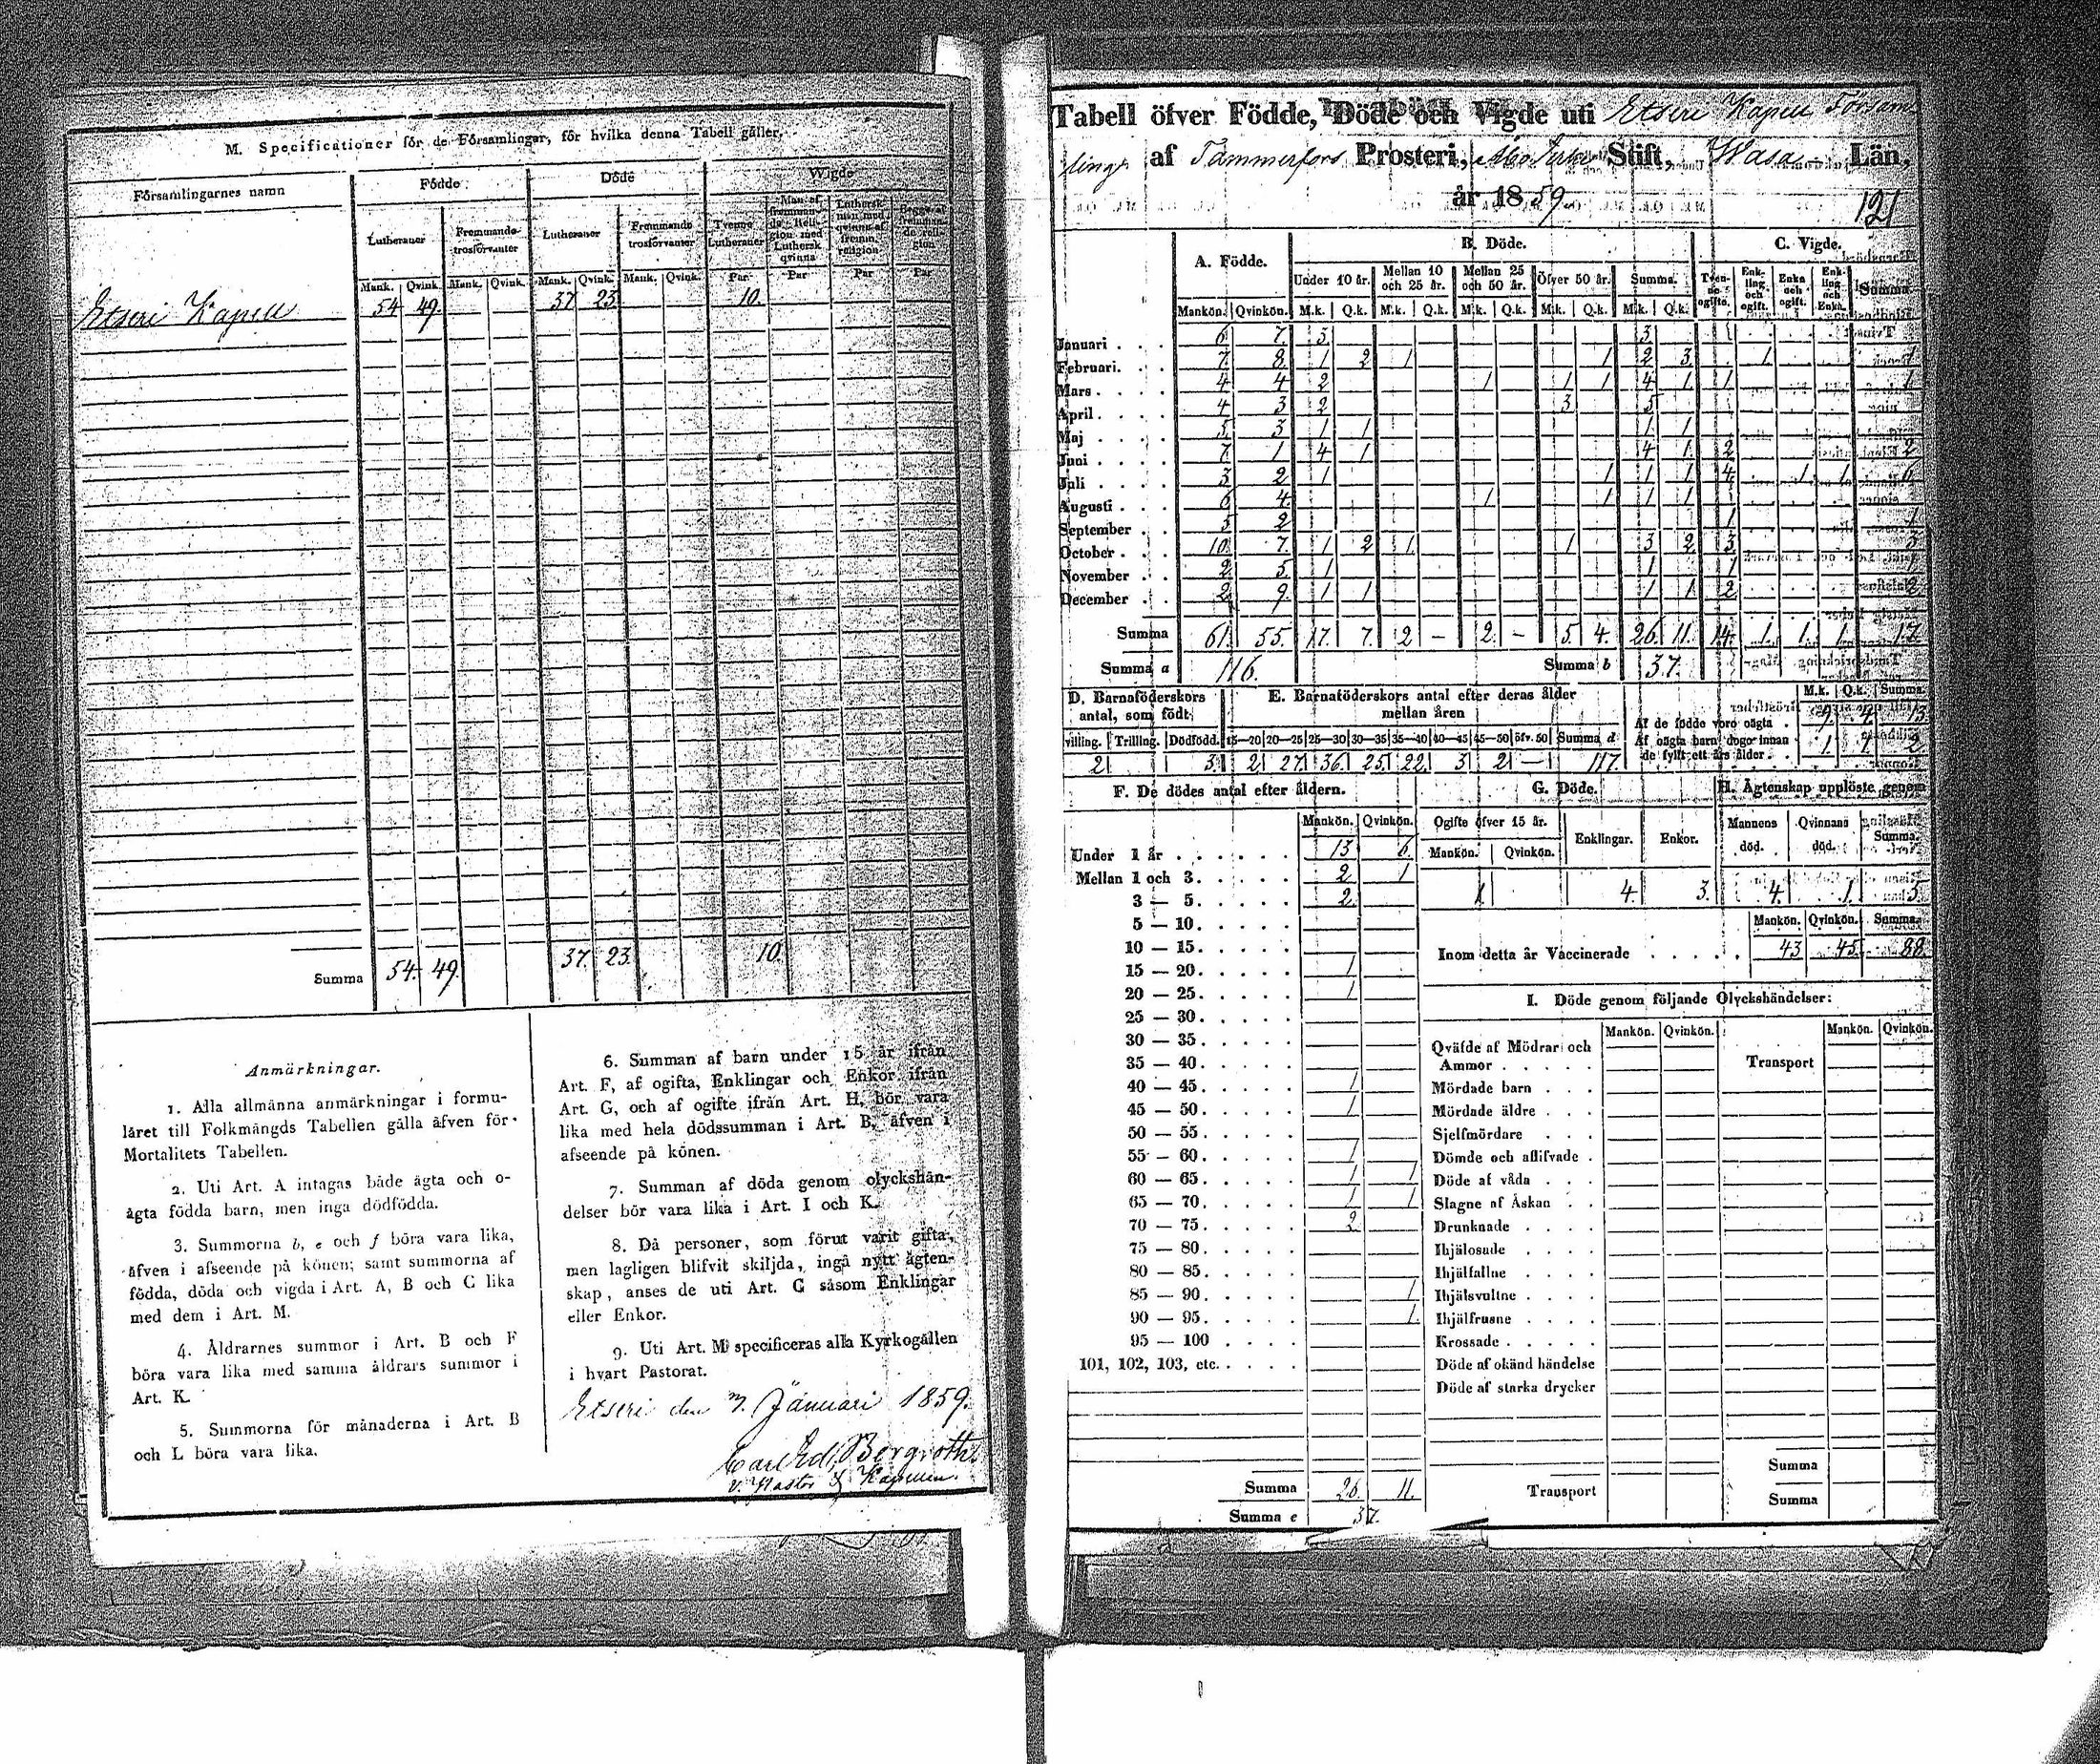 M. Specificationer för de Församlingar, för hvilka denna Tabell gäller.
Församlingarnes namn
Födde
Döde
Wigde
Lutheraner
Fremmande trosförvanter
Lutheraner
Fremmande trosförvanter
Tvenne Lutheraner
Mank. Qvink. Mank. Qvink. Mank. Qvink. Mank. Qvink. Par Par Par Par
Etseri Kapell 54 49. 37 23 10.
Summa 54. 49. 37. 23. 10.
Anmärkningar.
1. Alla allmänna anmärkningar i formu-
läret till Folkmängds Tabellen gälla äfven för
Mortalitets Tabellen.
2. Uti Art. A intagas både ägta och o-
ägta födda barn, men inga dödfödda.
3. Summorna b, e och f böra vara lika,
äfven i afseende på könen; samt summorna af
födda, döda och vigda i Art. A, B och C lika
med dem i Art. M.
4. Åldrarnes summor i Art. B och F
böra vara lika med samma åldrars summor i
Art. K.
5. Summorna för månaderna i Art. B
och L böra vara lika.
6. Summan af barn under 15 år ifrån
Art. F, af ogifta, Enklingar och Enkor ifrån
Art. G, och af ogifte ifrån Art. H, bör vara
lika med hela dödssumman i Art. B, äfven i
afseende på könen.
7. Summan af döda genom olyckshän-
delser bör vara lika i Art. I och K.
8. Då personer, som förut varit gifta,
men lagligen blifvit skiljda, ingå nytt ägten-
skap, anses de uti Art. C såsom Enklingar
eller Enkor.
9. Uti Art. M specificeras alla Kyrkogällen
i hvart Pastorat.
Etseri den Januari 1859.
Carl Edv. Bergroth
v. Pastor
Tabell öfver Födde, Döde och Vigde uti Etseri Kapell Försam
lings af Tammerfors Prosteri, Stift, Wasa Län,
år 1859.
121
A. Födde.
B. Döde.
C. Vigde.
Under 10 år. Mellan 10 och 25 år. Mellan 25 och 50 år. Öfver 50 år. Summa.
Tven-ne ogifte. Enk-ling och ogift. Enka och ogift. Enk-ling och Enka. Summa.
Mankön. Qvinkön. M.k. Q.k. M.k. Q.k. M.k. Q.k. M.k. Q.k. M.k. Q.k.
Januari 6 7. 3. 3.
Februari. 7. 8. 1 2 1 1 2 3. 1 1
Mars 4 4 2 1 1 1 4 1 1 1
April 4 3 2 3 5
Maj 5. 3 1 1 1 1
Juni 7 1 4 1 4 1 2 2
Juli 3 2 1 1 1 1 4 1 1 6
Augusti 6 4. 1 1 1 1
September 5 2 1 1
October 10. 7. 1 2 1. 1 3 2 3 3
November 2 5. 1 1 1 1
December 2 9. 1 1 1 1 2 2
Summa 61. 55. 17. 7. 2 – 2. – 5. 4. 26. 11. 14. 1. 1. 1. 17.
Summa a 116. Summa b 37.
D. Barnaföderskors antal, som födt
villing. Trilling. Dödfödd.
2 3.
E. Barnaföderskors antal efter deras ålder mellan åren
15—20 20—25 25—30 30—35 35—40 40—45 45—50 öfv. 50 Summa d
2 27. 36. 25. 22. 3 2 – 117.
M.k. Q.k. Summa.
Af de födde voro oägta 9. 4. 13
Af oägta barn dogo innan de fyllt ett års ålder 1. 1. 2
F. De dödes antal efter åldern.
Mankön. Qvinkön.
Under 1 år 13 6.
Mellan 1 och 3. 2 1
3 — 5. 2
5 — 10.
10 — 15.
15 — 20. 1
20 — 25. 1
25 — 30.
30 — 35.
35 — 40.
40 — 45. 1
45 — 50. 1
50 — 55.
55 — 60. 1
60 — 65. 1 1
65 — 70. 1 1
70 — 75. 2
75 — 80.
80 — 85.
85 — 90. 1
90 — 95. 1.
95 — 100
101, 102, 103, etc.
Summa 26. 11.
Summa e 37.
G. Döde.
Ogifte öfver 15 år. Enklingar. Enkor.
Mankön. Qvinkön.
1 4. 3.
H. Ägtenskap upplöste genom
Mannens död. Qvinnans död. Summa.
4. 1. 5
Mankön. Qvinkön. Summa.
Inom detta år Vaccinerade 43 45. 88.
I. Döde genom följande Olyckshändelser:
Mankön. Qvinkön. Mankön. Qvinkön.
Qväfde af Mödrar och
Ammor
Transport
Mördade barn
Mördade äldre
Sjelfmördare
Dömde och aflifvade
Döde af våda
Slagne af Åskan
Drunknade
Ihjälosade
Ihjälfallne
Ihjälsvultne
Ihjälfrusne
Krossade
Döde af okänd händelse
Döde af starka drycker
Transport
Summa
Summa